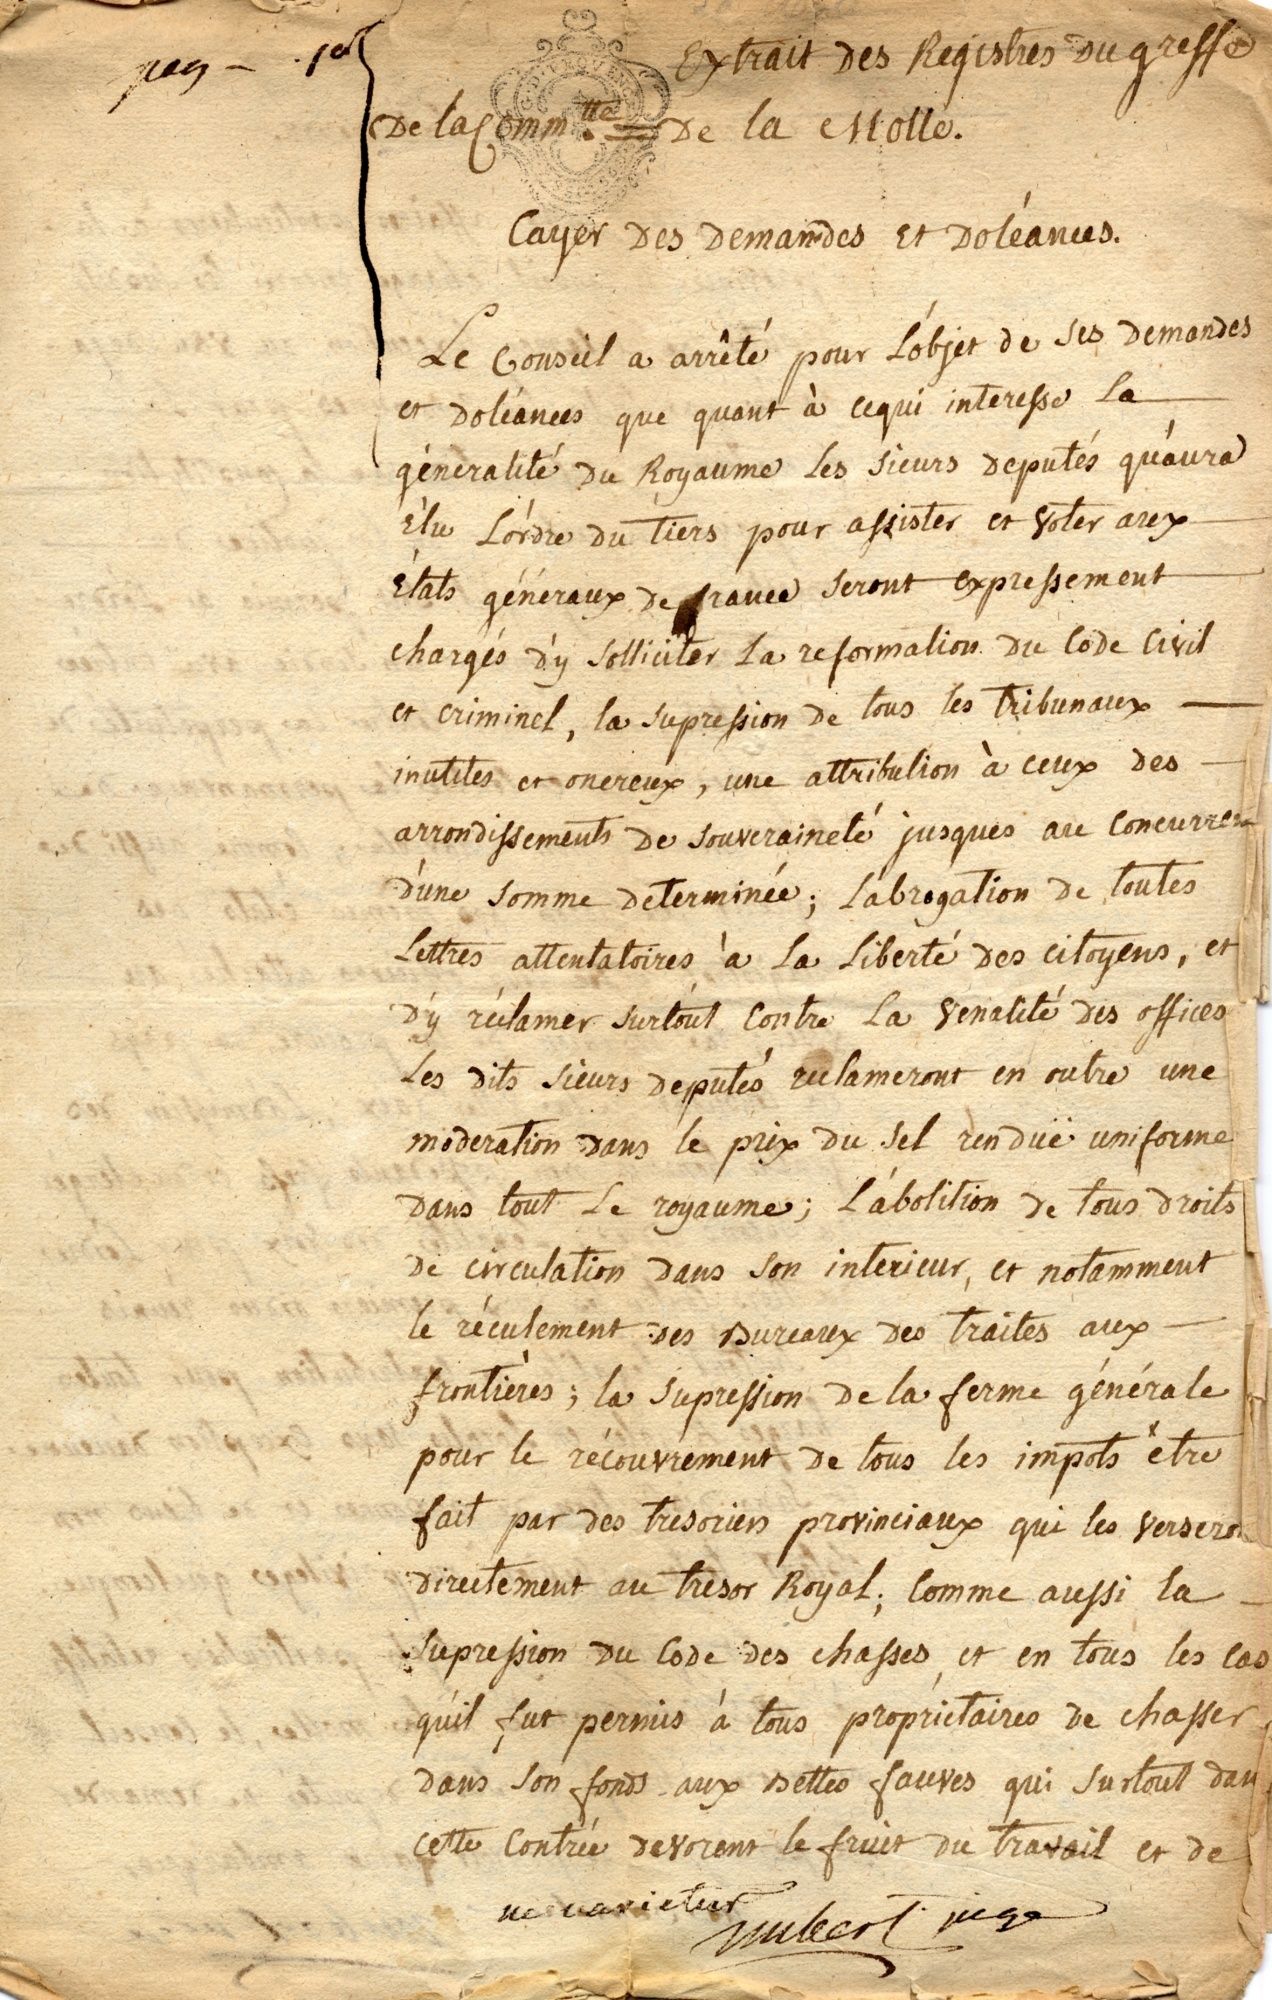 pag - 1er
Extrait des Registres du greffe
De la Comm.tté de la Molle.
Cayer des demandes et doléances.
Le Conseil a arrêté pour l'objet de ses demandes
et doléances que quant à cequi interesse la
géneralité du Royaume les sieurs deputés qu'aura
élu l'órdre du tiers pour assister et voter aux
États généraux de france seront expressement
chargés d'y solliciter la reformation du Code Civil
et criminel, la supression de tous les tribunaux
inutiles et onereux, une attribution à ceux des
arrondissements de souveraineté jusques au concurren
d'une somme determinée; l'abrogation de toutes
lettres attentatoires à la liberté des citoyens, et
d'y réclamer surtout contre la venalité des offices
les dits sieurs deputés reclameront en outre une
moderation dans le prix du sel renduë uniforme
dans tout le royaume; l'ábolition de tous droits
de circulation dans son interieur, et notamment
le réculement des Bureaux des traites aux
frontières; la supression de la ferme générale
pour le récouvrement de tous les impots être
fait par des tresoriers provinciaux qui les verseron
directement au tresor Royal; Comme aussi la
supression du Code des chasses et en tous les cas
qu'il fut permis à tous propriétaires de chasser
dans son fonds aux Bettes fauves qui surtout dan
cette Contrée devorent le fruit du travail et de
ne varietur
juge